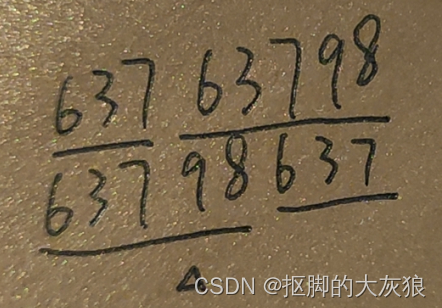 637 63798
637 98 637
CSDN @抠脚的大灰狼